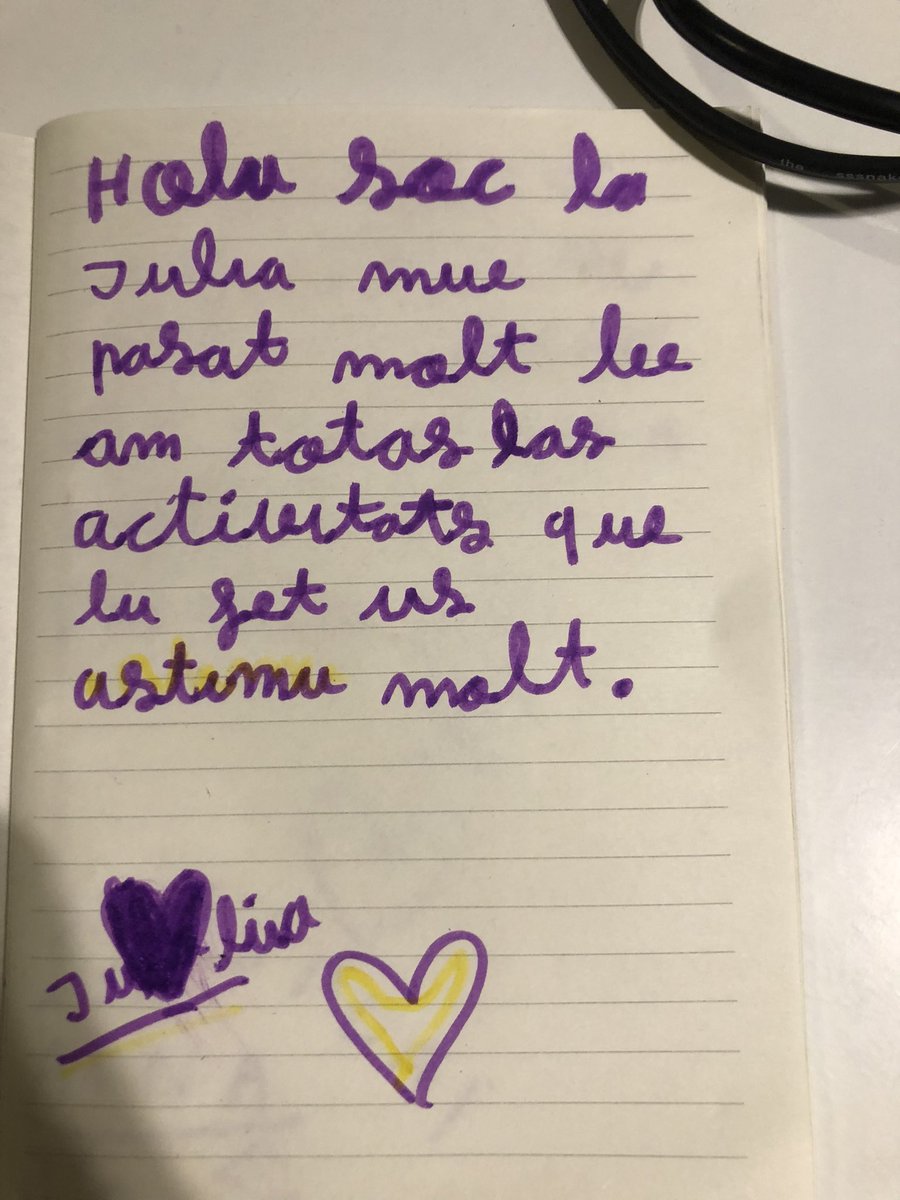 Hola soc la
Julia mue
pasat molt be
am totas las
activitats que
la fet us
astimu molt.
Julia
the sssnake